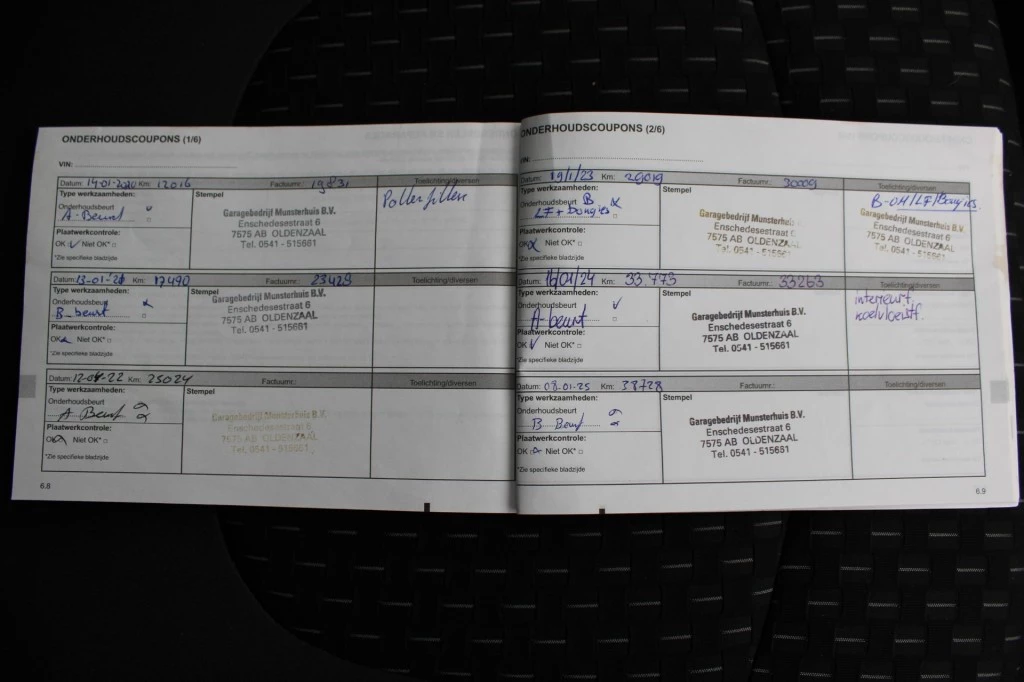 ONDERHOUDSCOUPONS (1/6)
VIN:
Datum: 14-01-2020 Km: 12016 Factuurnr.: 19831 Toelichting/diversen
Type werkzaamheden: Stempel
Onderhoudsbeurt
A-Beurt
Plaatwerkcontrole:
OK Niet OK*
*Zie specifieke bladzijde
Garagebedrijf Munsterhuis B.V.
Enschedesestraat 6
7575 AB OLDENZAAL
Tel. 0541 - 515661
Pollenfilter
Datum: 13-01-21 Km: 17490 Factuurnr.: 23429 Toelichting/diversen
Type werkzaamheden: Stempel
Onderhoudsbeurt
B-beurt
Plaatwerkcontrole:
OK Niet OK*
*Zie specifieke bladzijde
Garagebedrijf Munsterhuis B.V.
Enschedesestraat 6
7575 AB OLDENZAAL
Tel. 0541 - 515661
Datum: 12-04-22 Km: 25024 Factuurnr.: Toelichting/diversen
Type werkzaamheden: Stempel
Onderhoudsbeurt
A Beurt
Plaatwerkcontrole:
OK Niet OK*
*Zie specifieke bladzijde
Garagebedrijf Munsterhuis B.V.
Enschedesestraat 6
7575 AB OLDENZAAL
Tel. 0541 - 515661
6.8
ONDERHOUDSCOUPONS (2/6)
VIN:
Datum: 19/1/23 Km: 29019 Factuurnr.: 30009 Toelichting/diversen
Type werkzaamheden: Stempel
Onderhoudsbeurt B
LF + bougies
Plaatwerkcontrole:
OK Niet OK*
*Zie specifieke bladzijde
Garagebedrijf Munsterhuis
Enschedesestraat 6
7575 AB OLDENZAAL
Tel. 0541 - 515661
B-OH/LF/Bougies
Garagebedrijf Munsterhuis
Enschedesestraat 6
7575 AB OLDENZAAL
Tel. 0541 - 515661
Datum: 16/01/24 Km: 33.773 Factuurnr.: 33263 Toelichting/diversen
Type werkzaamheden: Stempel
Onderhoudsbeurt
A-beurt
Plaatwerkcontrole:
OK Niet OK*
*Zie specifieke bladzijde
Garagebedrijf Munsterhuis B.V.
Enschedesestraat 6
7575 AB OLDENZAAL
Tel. 0541 - 515661
koelvloeistf.
Datum: 08-01-25 Km: 38728 Factuurnr.: Toelichting/diversen
Type werkzaamheden: Stempel
Onderhoudsbeurt
B Beurt
Plaatwerkcontrole:
OK Niet OK*
*Zie specifieke bladzijde
Garagebedrijf Munsterhuis B.V.
Enschedesestraat 6
7575 AB OLDENZAAL
Tel. 0541 - 515661
6.9